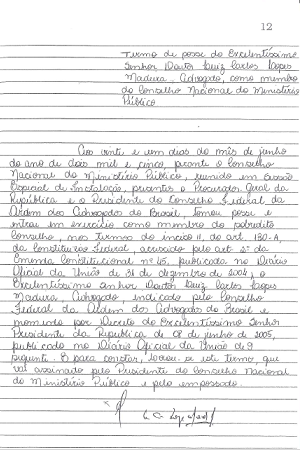 12
Termo de posse do Excelentíssimo
Senhor Doutor Luiz Carlos Lopes
Madeira, Advogado, como membro
do Conselho Nacional do Ministério
Público
Aos vinte e um dias do mês de junho
do ano de dois mil e cinco, perante o Conselho
Nacional do Ministério Público, reunido em Sessão
Especial de Instalação, presentes o Procurador-Geral da
República e o Presidente do Conselho Federal da
Ordem dos Advogados do Brasil, tomou posse e
entrou em exercício como membro do sobredito
Conselho, nos termos do inciso II, do art. 130-A,
da Constituição Federal, acrescido pelo art. 2º da
Emenda Constitucional nº 45, publicada no Diário
Oficial da União de 31 de dezembro de 2004, o
Excelentíssimo Senhor Doutor Luiz Carlos Lopes
Madeira, Advogado, indicado pelo Conselho
Federal da Ordem dos Advogados do Brasil e
nomeado por Decreto do Excelentíssimo Senhor
Presidente da República de 08 de junho de 2005,
publicado no Diário Oficial da União de 9
seguinte. E para constar, lavrou-se este termo, que
vai assinado pelo Presidente do Conselho Nacional
do Ministério Público e pelo empossado.